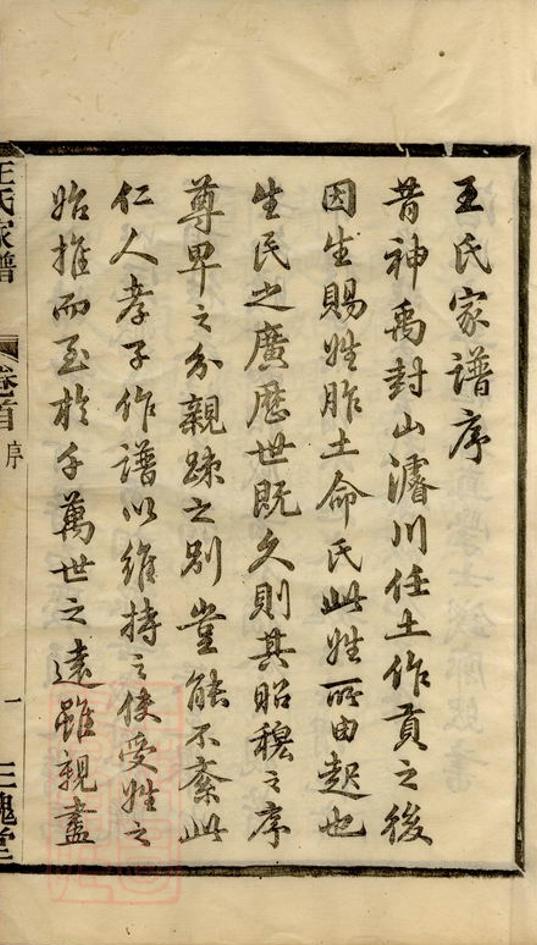 王氏家譜序
昔神禹封山濬川任土作貢之後
因生賜姓胙土命氏此姓所由起也
生民之廣歷世既久則其昭穆之序
尊卑之分親疎之別豈能不紊此
仁人孝子作譜以維持之使受姓之
始推而至於千萬世之遠雖親盡
王氏家譜 卷首 序 一 三槐堂